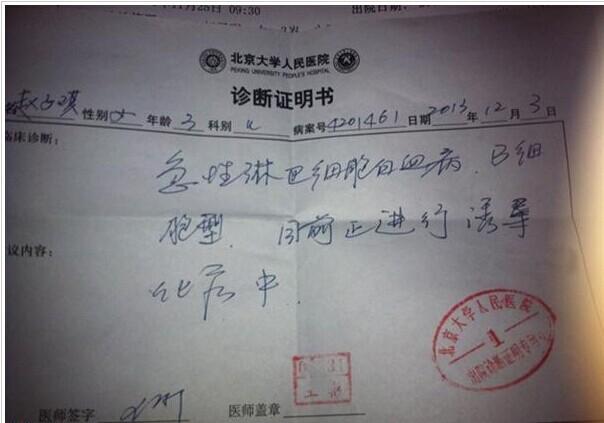 11月28日 09:30
出院日期:
北京大学人民医院
PEKING UNIVERSITY PEOPLE'S HOSPITAL
诊断证明书
赵子琪 性别 女 年龄 3 科别 病案号 4201461 日期 2013 年 12 月 3 日
临床诊断:
急性淋巴细胞白血病,B细
胞型.目前正进行诱导
化疗中.
议内容:
北京大学人民医院
1
医师签字
医师盖章